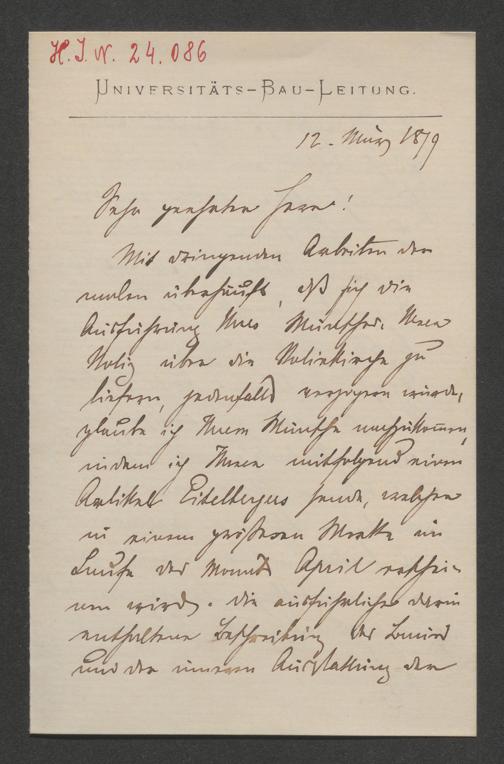 H. J. N. 24.086
UNIVERSITÄTS-BAU-LEITUNG.
12. März 1879
Sehr geehrter Herr!
Mit dringenden Arbeiten der
malen überhäuft, daß sich die
Ausführung Ihres Wunsches, Ihnen
Notiz über die Votivkirche zu
liefern, jedenfalls verzögern würde,
glaube ich Ihrem Wunsche nachzukommen,
indem ich Ihnen mitfolgend einen
Artikel Eitelbergers sende, welcher
in einem größeren Werke im
Laufe des Monats April erschei-
nen wird. Die ausführliche darin
enthaltene Beschreibung des Baues
und der inneren Ausstattung der